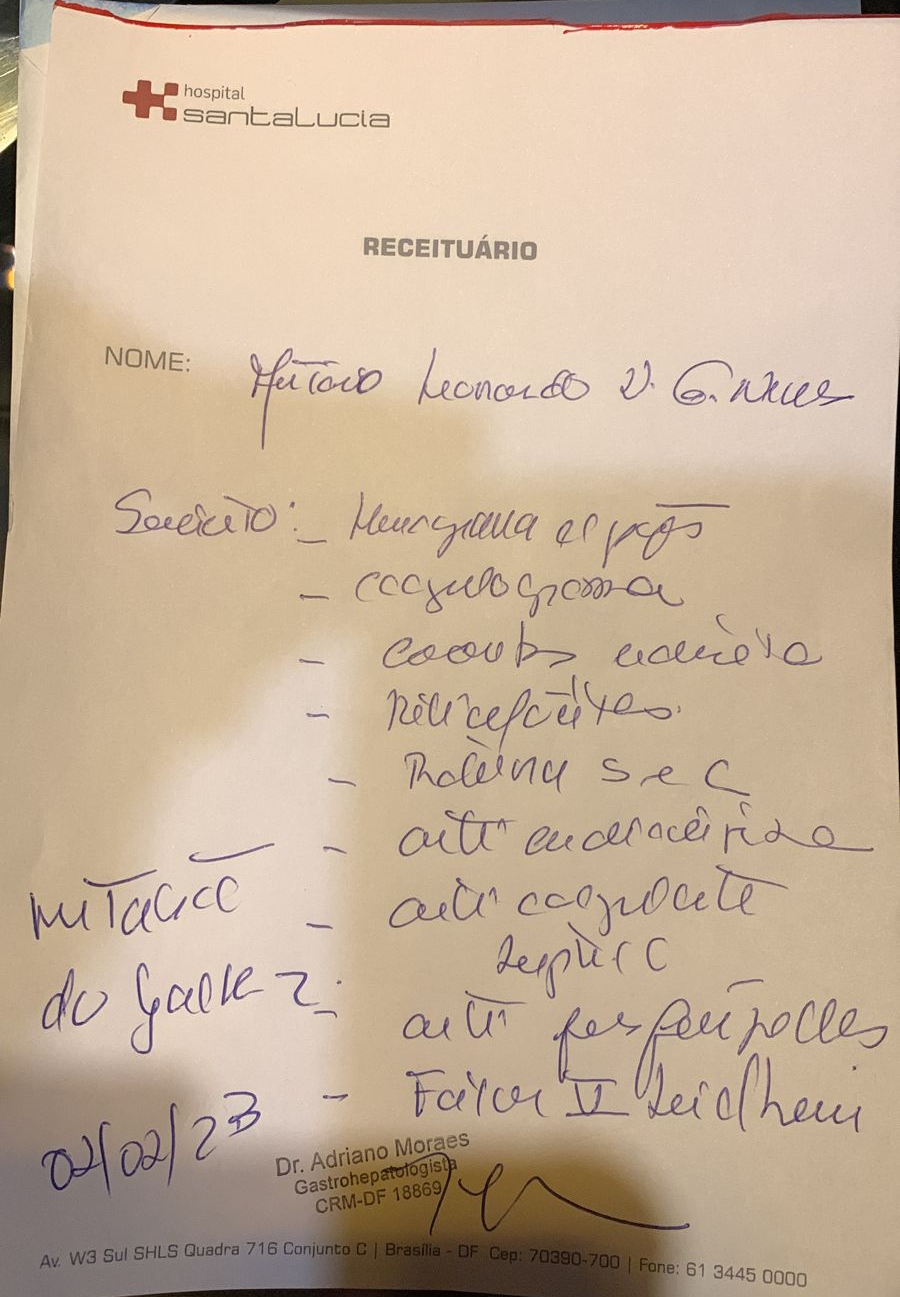 hospital
santaLucia
RECEITUÁRIO
NOME: Leonardo V. G. Neves
Solicito: - Hemograma c/ plaq
- coagulograma
- coombs indireto
- Reticulócitos
- Proteína S e C
- anti cardiolipina
- anti coagulante
lupico
- anti fosfolípides
- Fator V Leiden
mutação
do gene
02/02/23
Dr. Adriano Moraes
Gastrohepatologista
CRM-DF 18869
Av. W3 Sul SHLS Quadra 716 Conjunto C | Brasília - DF Cep: 70390-700 | Fone: 61 3445 0000